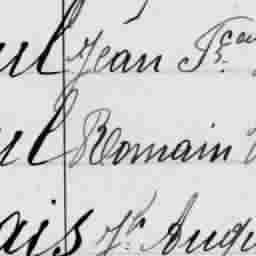 ul Jean Fcau
ul Romain
ais Jh Augu